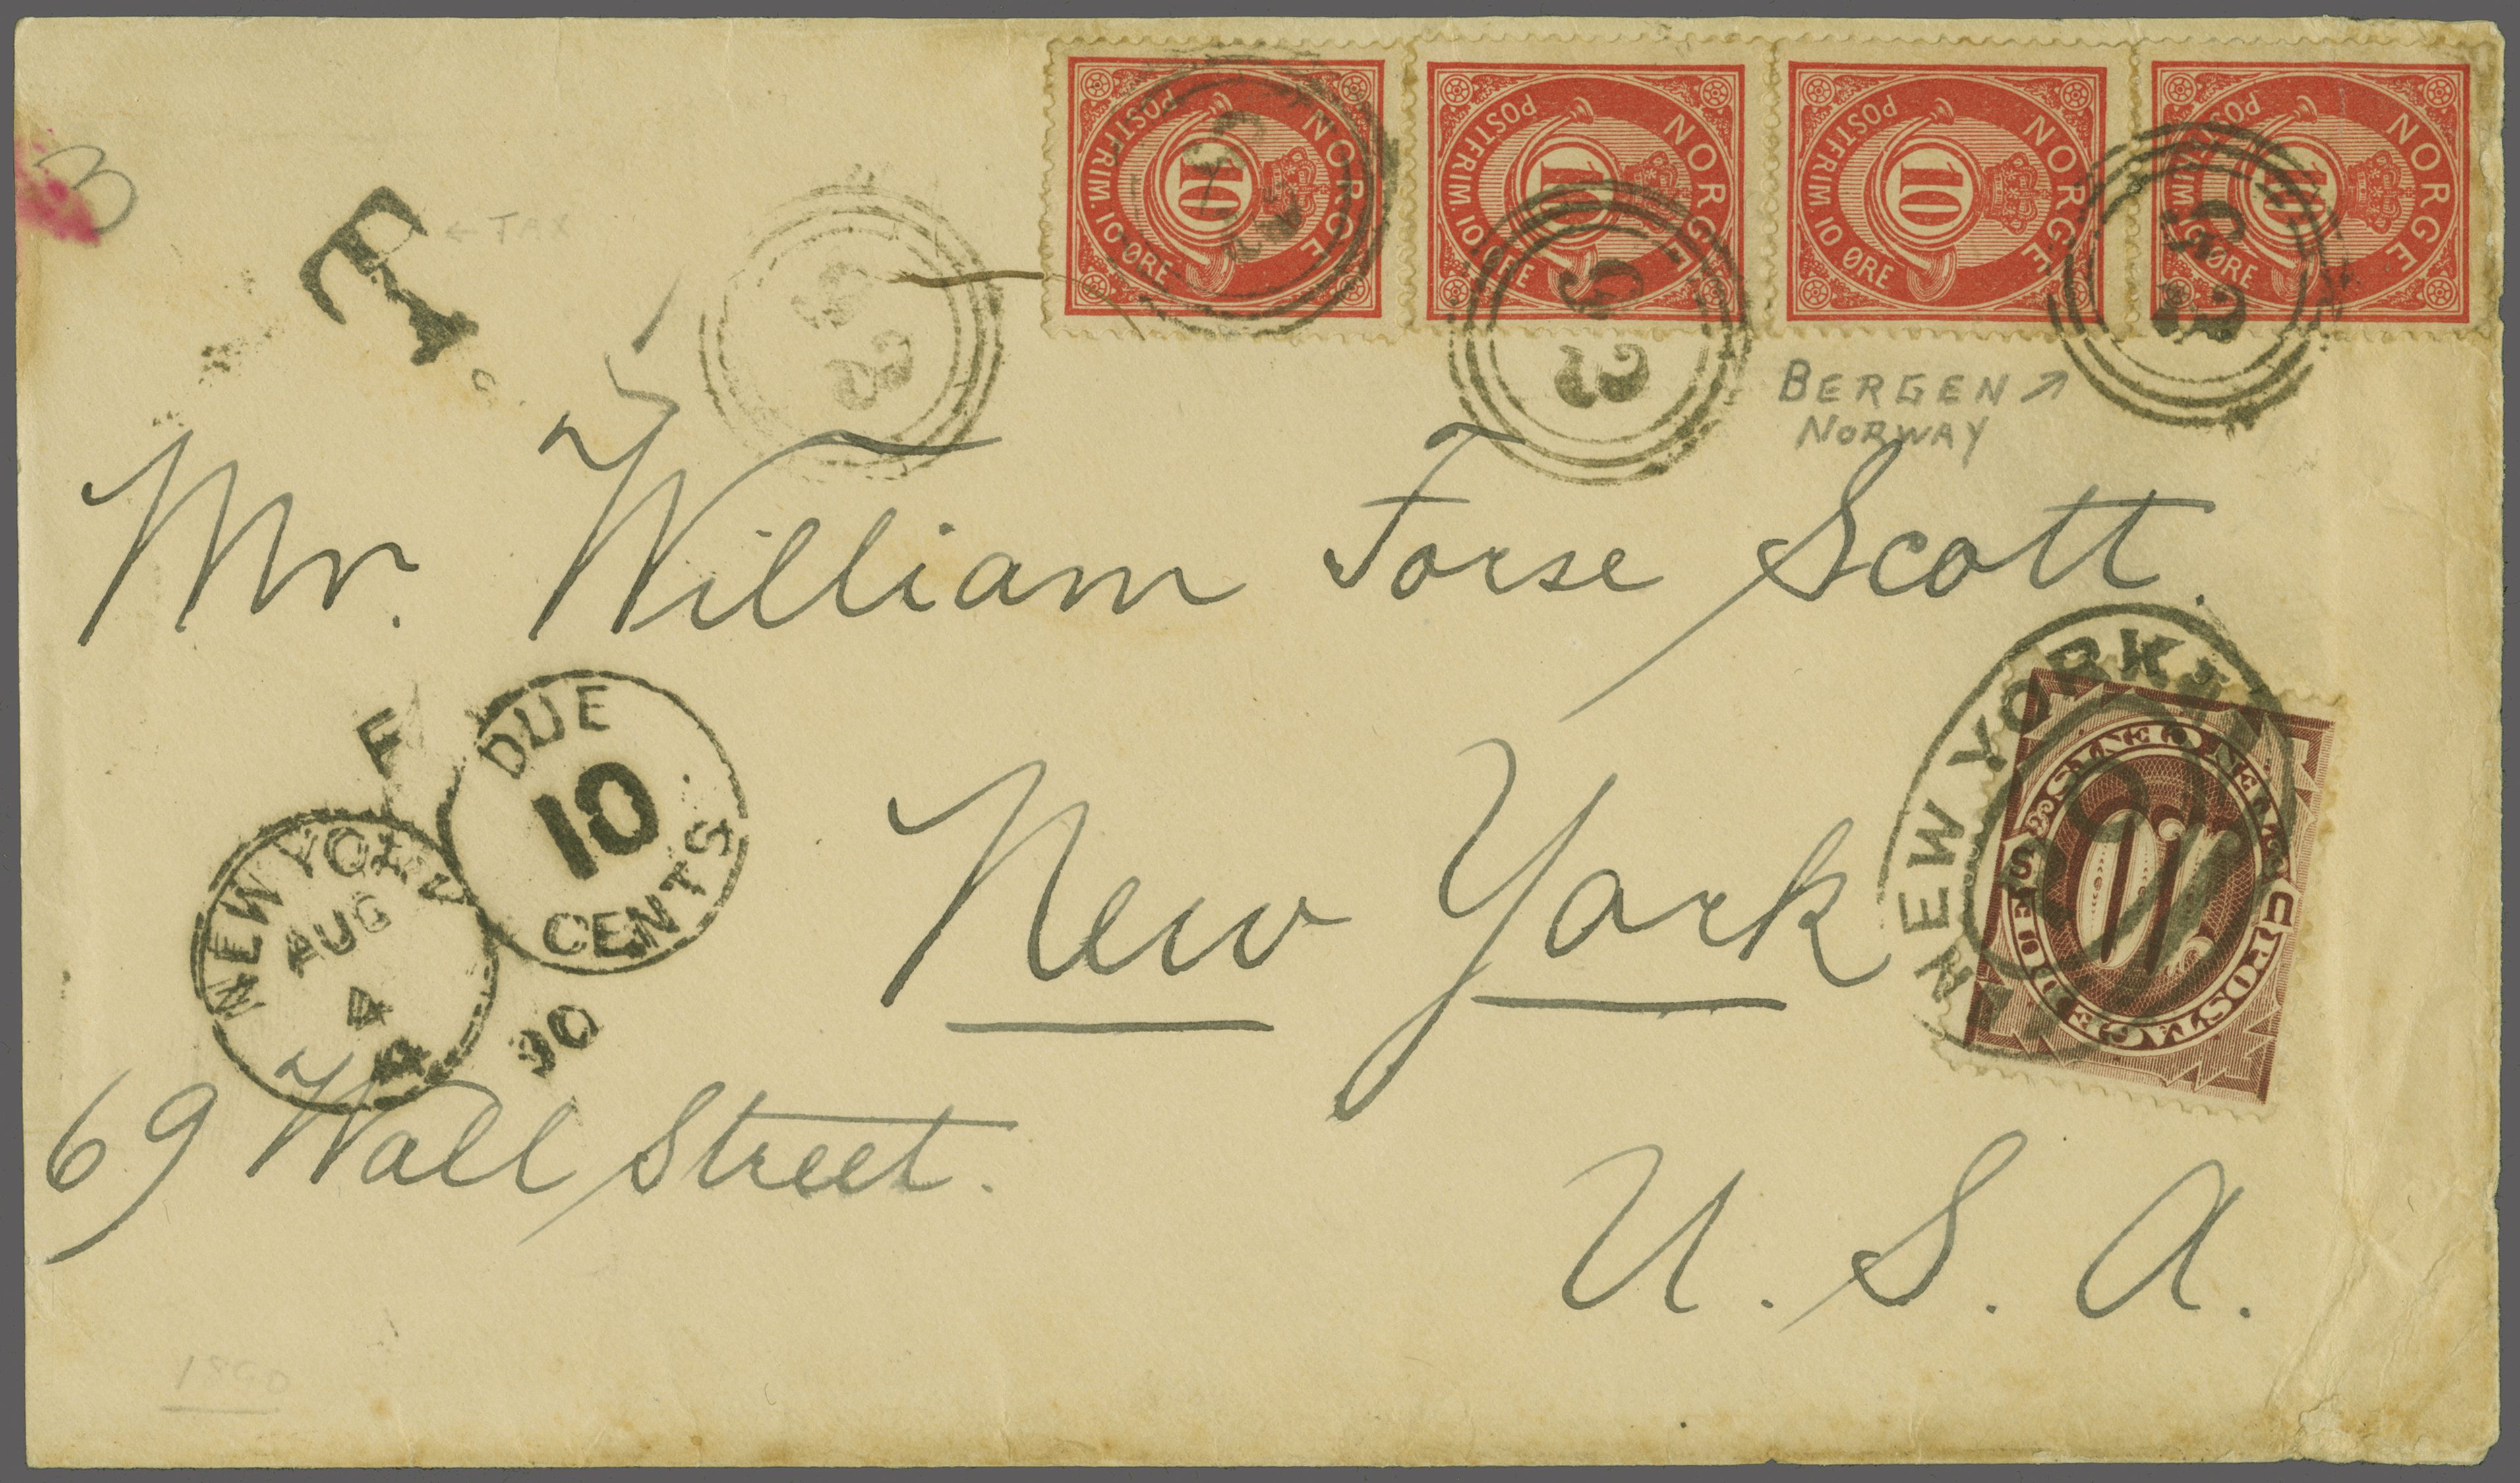 3
T
← TAX
NORGE
POSTFRIM. 10 ØRE
10
NORGE
POSTFRIM. 10 ØRE
10
NORGE
POSTFRIM. 10 ØRE
10
NORGE
POSTFRIM. 10 ØRE
10
BERGEN ↗
NORWAY
Mr. William Forse Scott.
F
DUE
10
CENTS
NEW YORK
AUG
4
90
New York
NEW YORK
POSTAGE DUE
10
69 Wall Street.
U. S. A.
1890